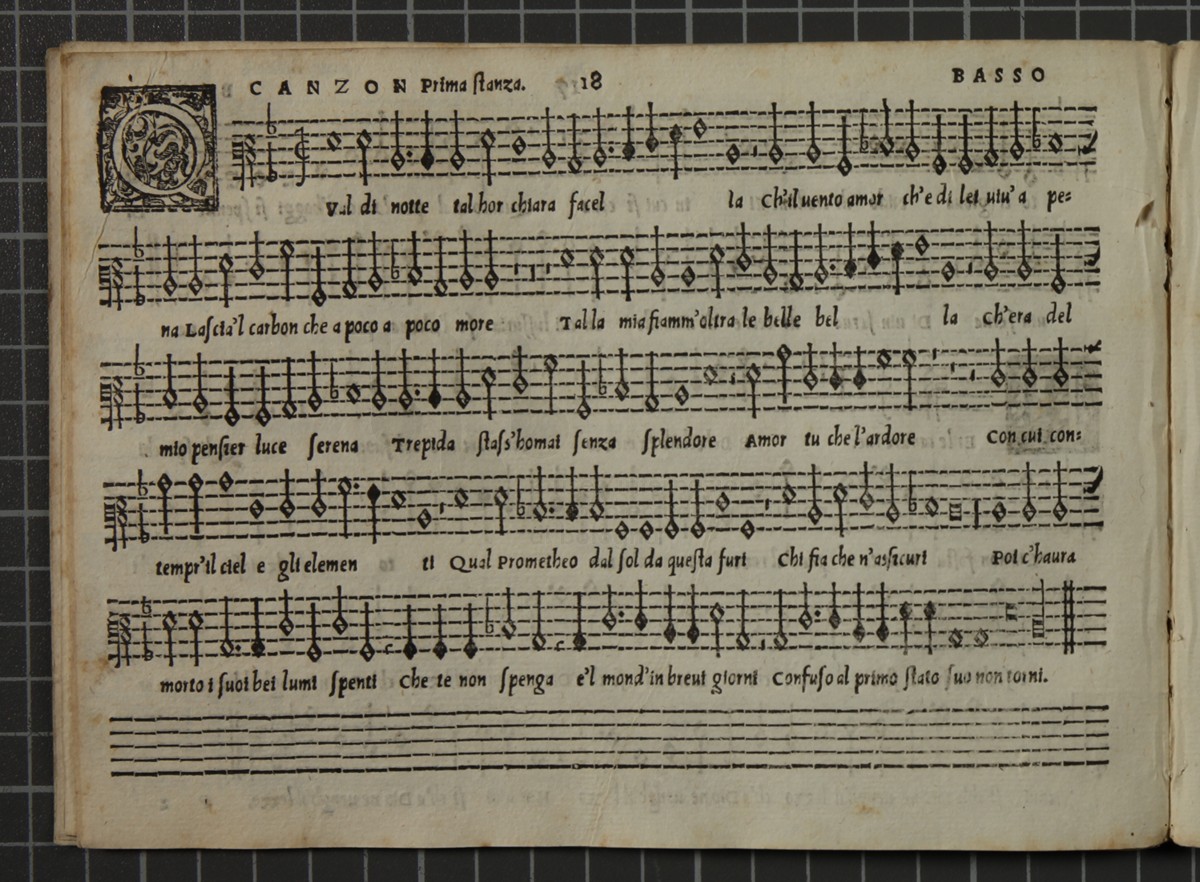 CANZON Prima ſtanza. 18 BASSO
QVal di notte tal hor chiara facel la Ch'il uento amor ch'e di lei uiu' a pe=
na Laſcia'l carbon che a poco a poco more Tal la mia fiamm'oltra le belle bel la ch'era del
mio penſier luce ſerena Trepida ſtaſs'homai ſenza ſplendore Amor tu che l'ardore Con cui con=
tempr'il ciel e gli elemen ti Qual Prometheo dal ſol da queſta furi Chi fia che n'aſsicuri Poi c'haura
morto i ſuoi bei lumi ſpenti Che te non ſpenga e'l mond'in breui giorni Confuſo al primo ſtato ſuo non torni.